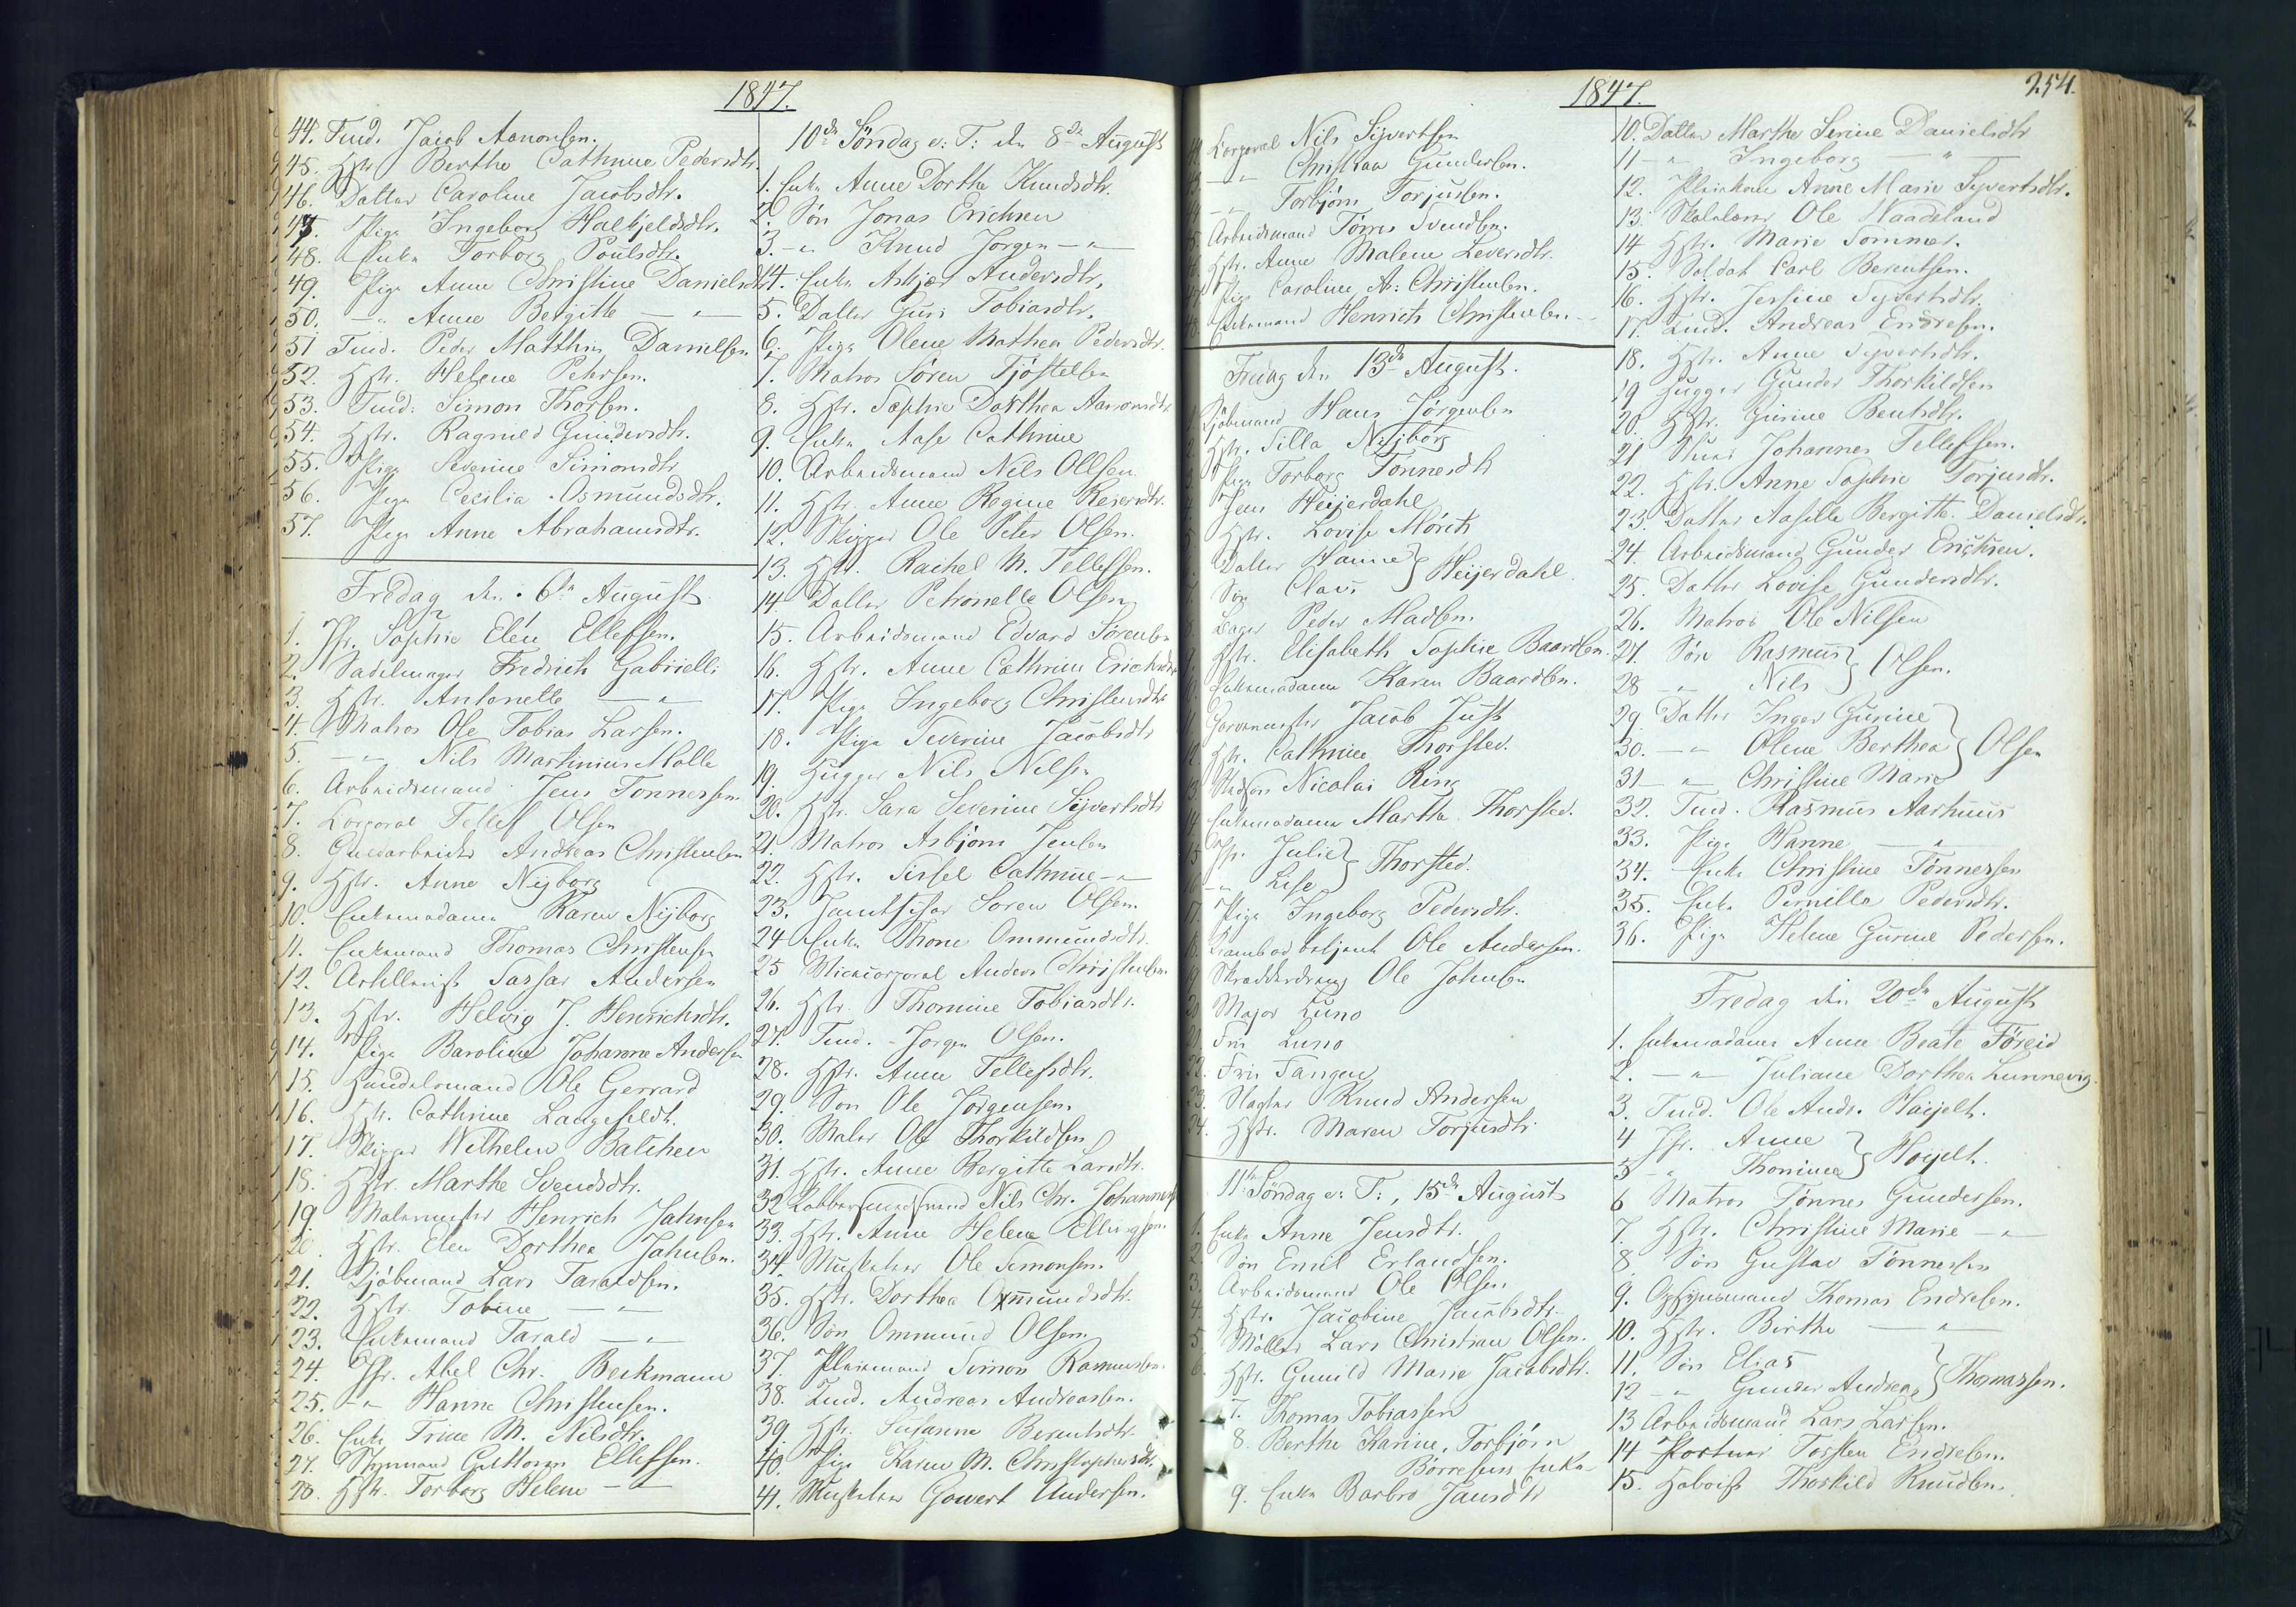 1847.
44. Tind. Jacob Aanonsen.
45. Hstr. Berthe Cathrine Pedersdtr.
46. Datter Caroline Jacobsdtr.
47. Pige Ingeborg Halkjeldsdtr.
48. Enke Torborg Poulsdtr.
49. Pige Anne Christine Danielsdtr
50. -"- Anne Bergitte -"-
51 Tind. Peder Matthis Danielsen
52. Hstr. Helene Petersen.
53. Tind: Simon Thorsen.
54. Hstr. Ragnild Gundersdtr.
55. Pige Severine Simonsdtr
56. Pige Cecilia Osmundsdtr.
57. Pige Anne Abrahamsdtr.
Fredag den 6te August
1. Jfr. Sophie Elen Ellefsen.
2. Sadelmager Fredrich Gabrielli
3. Hstr. Antonette -"-
4. Matros Ole Tobias Larsen.
5. -"- Nils Martinius Molle
6. Arbeidsmand Jens Tønnessen
7. Corporal Tellef Olsen
8. Guldarbeider Andreas Christensen
9. Hstr. Anne Nijborg
10. Enkemadame Karen Nijborg
11. Enkemand Thomas Christensen
12. Artillerist Tarjar Andersen
13. Hstr. Helvig J. Henrichsdtr.
14. Pige Baroline Johanne Andersen
15. Handelsmand Ole Gerrard
16. Hstr. Cathrine Langfeldt.
17. Skipper Wilhelm Balchen
18. Hstr. Marthe Svendsdtr.
19. Malermester Henrich Jahnsen
20. Hstr. Elen Dorthea Jahnsen.
21. Sjöbmand Lars Taraldsen.
22. Hstr. Tobine -"-
23. Enkemand Tarald -"-
24. Jfr. Abel Chr. Beckmann
25. -"- Hanne Christensen.
26. Enke Trine M. Nilsdtr.
27. Styrmand Guttorm Ellefsen.
28. Hstr. Torborg Helene -"-
10de Søndag e: T: den 8de August
1. Enke Anne Dorthe Knudsdtr.
2. Søn Jonas Erichsen
3. -"- Knud Jørgen -"-
4. Enke Askjer Andersdtr.
5. Datter Guri Tobiasdtr.
6. Pige Olene Mathea Pedersdtr.
7. Matros Søren Tjøstelsen
8. Hstr. Sophie Dorthea Aanonsdtr
9. Enke Aase Cathrine
10. Arbeidsmand Nils Ollsen
11. Hstr. Anne Regine Reiersdtr.
12. Skipper Ole Peter Olsen.
13. Hstr. Rachel M. Tellefsen.
14 Datter Petronelle Olsen
15. Arbeidsmand Edvard Sørensen
16. Hstr. Anne Cathrine Erichsdtr
17. Pige Ingeborg Christensdtr
18. Pige Severine Jacobsdtr
19. Hugger Nils Nilsen
20. Hstr. Sara Severine Sijvertsdtr
21. Matros Asbjørn Jensen
22. Hstr. Sissel Cathrine -"-
23. Søren Olsen.
24 Enke Thone Ommundsdtr.
25 Vicecorporal Anders Christensen
26. Hstr. Thomine Tobiasdtr.
27. Tind. Jørgen Olsen.
28. Hstr. Anne Tellefsdtr.
29. Søn Ole Jørgensen.
30. Maler Ole Thorkildsen
31. Hstr. Anne Bergitte Larsdtr.
32 Kobbersmedsvend Nils Chr. Johannes
33. Hstr. Anne Helene Ellingsen.
34 Musketeer Ole Simonsen.
35. Hstr. Dorthea Osmundsdtr.
36. Søn Ommund Olsen.
37. Simon Rasmussen.
38. Tind. Andreas Andreassen.
39. Hstr. Susanne Berentsdtr.
40. Pige Karen M. Christophersdtr.
41. Musketeer Gowert Andersen.
1847.
254.
Corporal Nils Sijvertsen
-"- Christian Gundersen.
-"- Torbjørn Torjusen.
Arbeidsmand Tørres Svendsen.
Hstr. Anne Malene Leversdtr.
Pige Caroline A: Christensen.
Enkemand Henrich Christensen.
Fredag den 13de August.
Sjöbmand Hans Jørgensen
2. Hstr. Silla Nijborg
3. Pige Torborg Tønnesdtr
4. Jens Heijerdahl
5. Hstr. Lovise Moritz
Datter Hanne } Heijerdahl.
7. Søn Claus
8. Bager Peder Madsen.
9. Hstr. Elisabeth Sophie Baardsen.
Enkemadame Karen Baardsen.
11. Garvermester Jacob Just
12. Hstr. Cathrine Thorsted.
13. Nicolai Ring
14. Enkemadame Marthe Thorsted.
15 Jfr. Julie } Thorsted.
-"- Lise
17. Pige Ingeborg Pedersdtr.
18. Krambodbetjent Ole Andersen.
19 Skrædderdreng Ole Jahnsen
20 Major Luno
21. Fru Luno
22. Fru Tangen
23. Slagter Knud Andersen
24. Hstr. Maren Torjusdtr.
11te Søndag e: T:, 15de August
1. Enke Anne Jensdtr.
2. Søn Emil Erlandsen.
3. Arbeidsmand Ole Olsen
4. Hstr. Jacobine Jacobsdtr.
5. Møller Lars Christian Olsen.
6. Hstr. Gunild Marie Jacobsdtr.
7. Thomas Tobiassen
8. Berthe Karine, Torbjørn
Børresens Enke
9. Enke Barbro Jansdtr
10. Datter Marthe Serine Danielsdtr
11 -"- Ingeborg -"-
12. Pleiekone Anne Marie Syvertsdtr.
13. Skolelærer Ole Naadeland
14 Hstr. Marie Sommer.
15. Soldat Carl Berentsen.
16. Hstr. Jessine Syvertsdtr.
17. Tind. Andreas Endresen.
18. Hstr. Anne Syvertsdtr.
19 Hugger Gunder Thorkildsen
20. Hstr. Gurine Bentsdtr.
21 Johannes Tellefsen.
22. Hstr. Anne Sophie Torjusdtr.
23. Datter Aasille Bergitte Danielsdtr.
24. Arbeidsmand Gunder Erichsen.
25. Datter Lovise Gundersdtr.
26. Matros Ole Nilsen
27. Søn Rasmus } Olsen.
28 -"- Nils
29 Datter Inger Gurine
30. -"- Olene Berthea } Olsen
31 -"- Christine Marie
32. Tind. Rasmus Aarhuus
33. Pige Hanne -"-
34. Enke Christine Tønnessen
35. Enke Pernille Pedersdtr.
36. Pige Helene Gurine Pedersen.
Fredag den 20de August
1. Enkemadame Anne Beate Føreid
2. -"- Juliane Dorthea Lunnevig.
3. Tind. Ole Andr. Høijelt.
4 Jfr. Anne } Høijelt.
5 -"- Thomine
6 Matros Tønnes Gundersen.
7. Hstr. Christine Marie -"-
8. Søn Gustav Tønnessen
9. Opsynsmand Thomas Endresen.
10. Hstr. Birthe -"-
11. Søn Elias } Thomassen.
12 -"- Gunder Andreas
13 Arbeidsmand Lars Larsen.
14 Portner Torsten Endresen.
15. Hoboist Thorkild Knudsen.